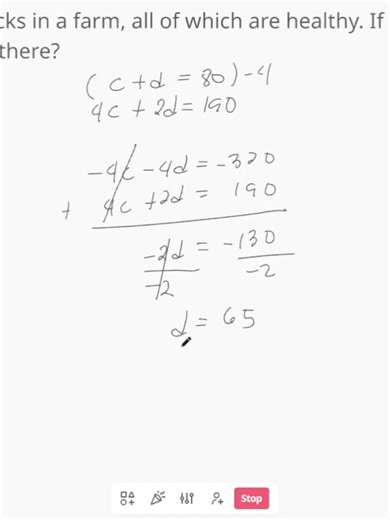 cks in a farm, all of which are healthy. If
there?
(c+d = 80)-4
4c + 2d = 190
-4c - 4d = -320
+ 4c + 2d = 190
-2d = -130
-2 -2
d = 65
Stop